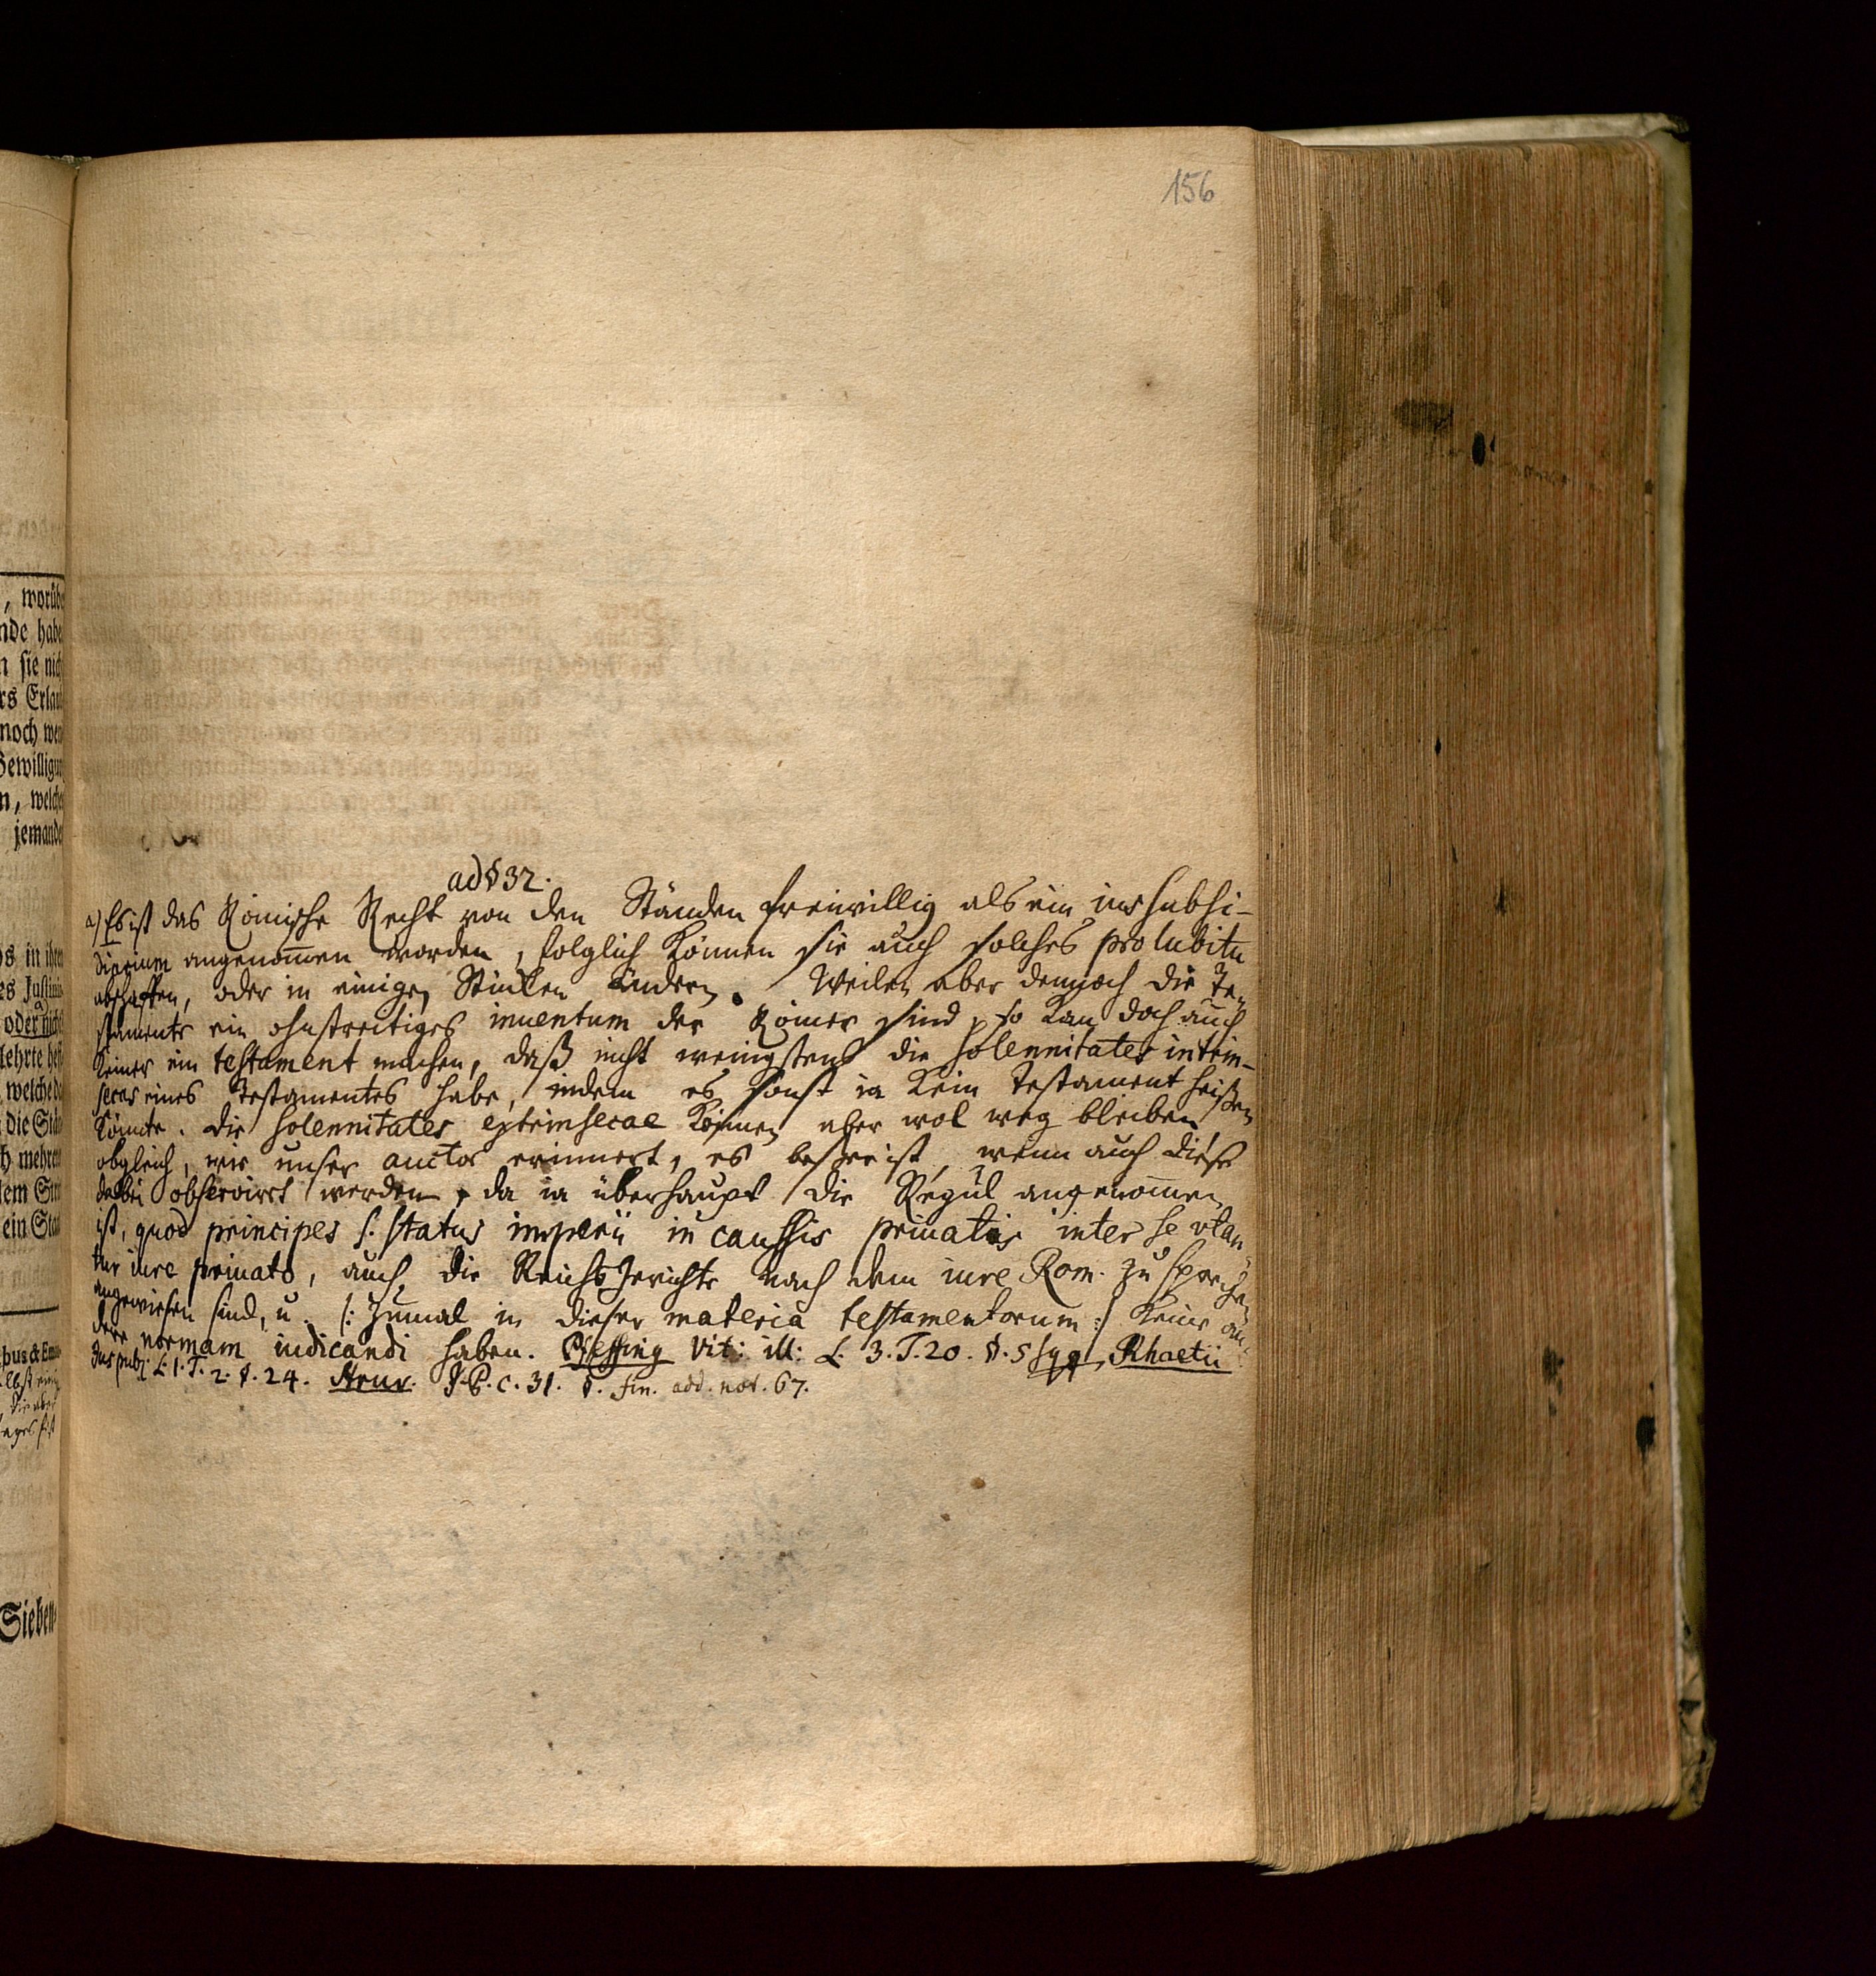 156
, worüb
nde habe
n sie nich
rs Erlau
noch wen
Bewilligun
n, welche
jemande
ds in ihren
es Justini
oder nicht
lehrte
welche
die
h mehren
ein
Sieben
ad § 32.
a) Es ist das Römische Recht von den Ständen freiwillig als ein ius subsi-
diarium angenom̅en worden, folglich können sie auch solches pro lubitu
abschaffen, oder in einigen Stücken ändern. Weilen aber dennoch die Te-
stamente ein ohnstreitiges inuentum der Römer sind, so kan doch auch
keiner ein testament machen, daß nicht wenigstens die solennitates intrin-
secas eines Testamentes habe, indem es sonst ia kein Testament heißen
könnte. Die solennitates extrinsecae können aber wol weg bleiben,
obgleich, wie unser auctor erinnert, es besser ist, wenn auch diese
dabei observirt werden, da ia überhaupt die Regul angenom̅en
ist, quod principes s. status imperii in caussis priuatis inter se vtan-
tur iure priuato, auch die ReichsGerichte nach dem iure Rom. zu sprechen
angewiesen sind, u. (: zumal in dieser materia testamentorum :) keine an-
dere normam iudicandi haben. Pfeffing Vit: ill: L. 3. T. 20. §. 5 sqq, Rhaetii
Jus publ: L. 1. T. 2. §. 24. Struv. J. P. c. 31. §. fin. add. not. 67.